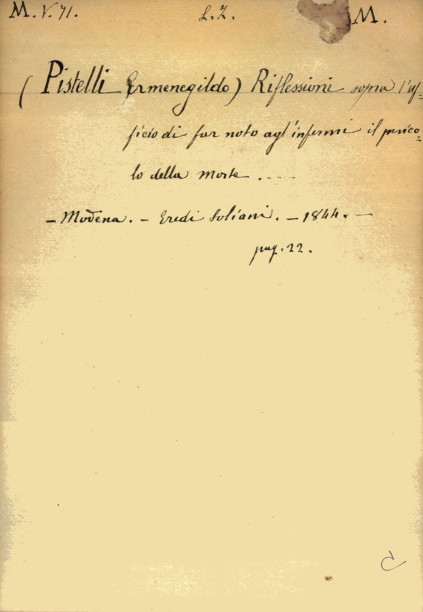 M. V. 71. L. Z. M.
(Pistelli Ermenegildo) Riflessioni sopra l'uf-
ficio di far noto agl'infermi il perico-
lo della morte . ....
- Modena. - Eredi Soliani. - 1844. -
pag. 22.
C